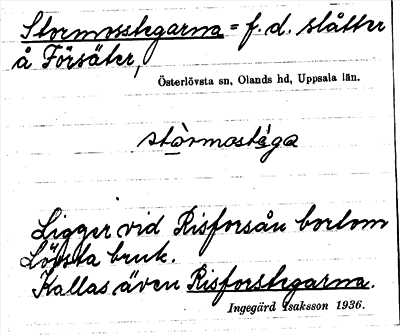 Stormosstegarna = f.d. slåtter
å Försäter,
Österlövsta sn, Olands hd, Uppsala län.
stòrmostéga
Ligger vid Risforsån bortom
Lövsta bruk.
Kallas även Risforstegarna.
Ingegärd Isaksson 1936.